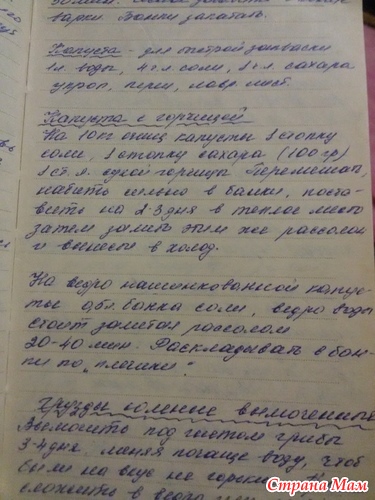 варки. Банки закатать.
Капуста - для быстрой закваски
1л. воды, 4 г. соли, 1 л. сахара
укроп, перец, лавр. лист.
Капуста с горчицей
На 10 кг очищ капусты 1 стопку
соли, 1 стопку сахара (100 гр)
1 ст. л. сухой горчицы Перемешать,
набить сильно в банки, поста-
вить на 2-3 дня в теплое место
затем залить этим же рассолом
и вынести в холод.
На ведро нашинкованной капус-
ты 0,5 л. банка соли, ведро воды
стоит залитая рассолом
20-40 мин. Раскладывать в бан-
ки по „плечики".
Грузди соленые вымоченные
Вымочить под гнетом грибы
3-4 дня. меняя почаще воду, чтоб
были на вкус не горькие
сложить в ведро
Страна Мам